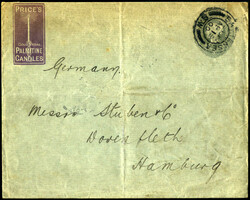 PRICE'S
PALMITINE
CANDLES
Germany.
Messrs Stuben & Co
Hamburg